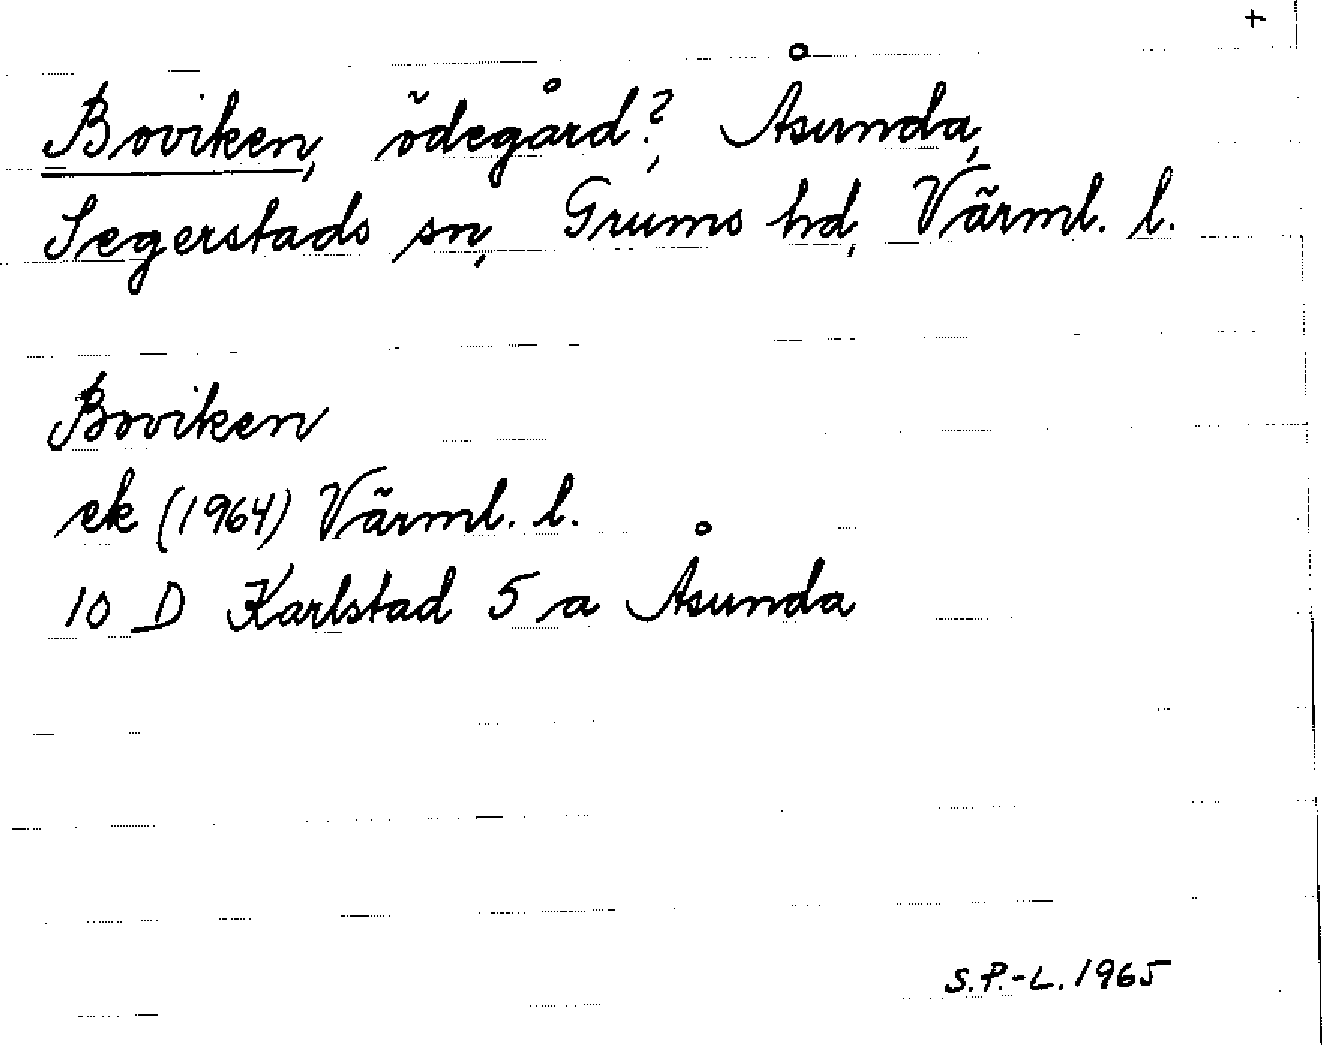 +
Boviken, ödegård?, Åsunda,
Segerstads sn, Grums hd, Värml. l.
Boviken
ek (1964) Värml. l.
10 D Karlstad 5 a Åsunda
S.P.-L. 1965